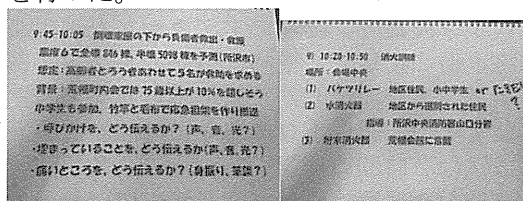 を行った。
9:45-10:05 倒壊家屋の下から負傷者救出・救護
震度6で全壊846棟、半壊5098棟を予測(所沢市)
想定:高齢者とろう者あわせて5名が救助を求める
背景:荒幡町内会では75歳以上が10%を超しそう
中学生も参加、竹竿と毛布で応急担架を作り搬送
・呼びかけを、どう伝えるか?(声、音、光?)
・埋まっていることを、どう伝えるか(声、音、光?)
・痛いところを、どう伝えるか?(身振り、筆談?)
9) 10:20-10:50 消火訓練
場所:会場中央
(1) バケツリレー 地区住民、小中学生 or
(2) 水消火器 地区から選別された住民
指導:所沢中央消防署山口分署
(3) 粉末消火器